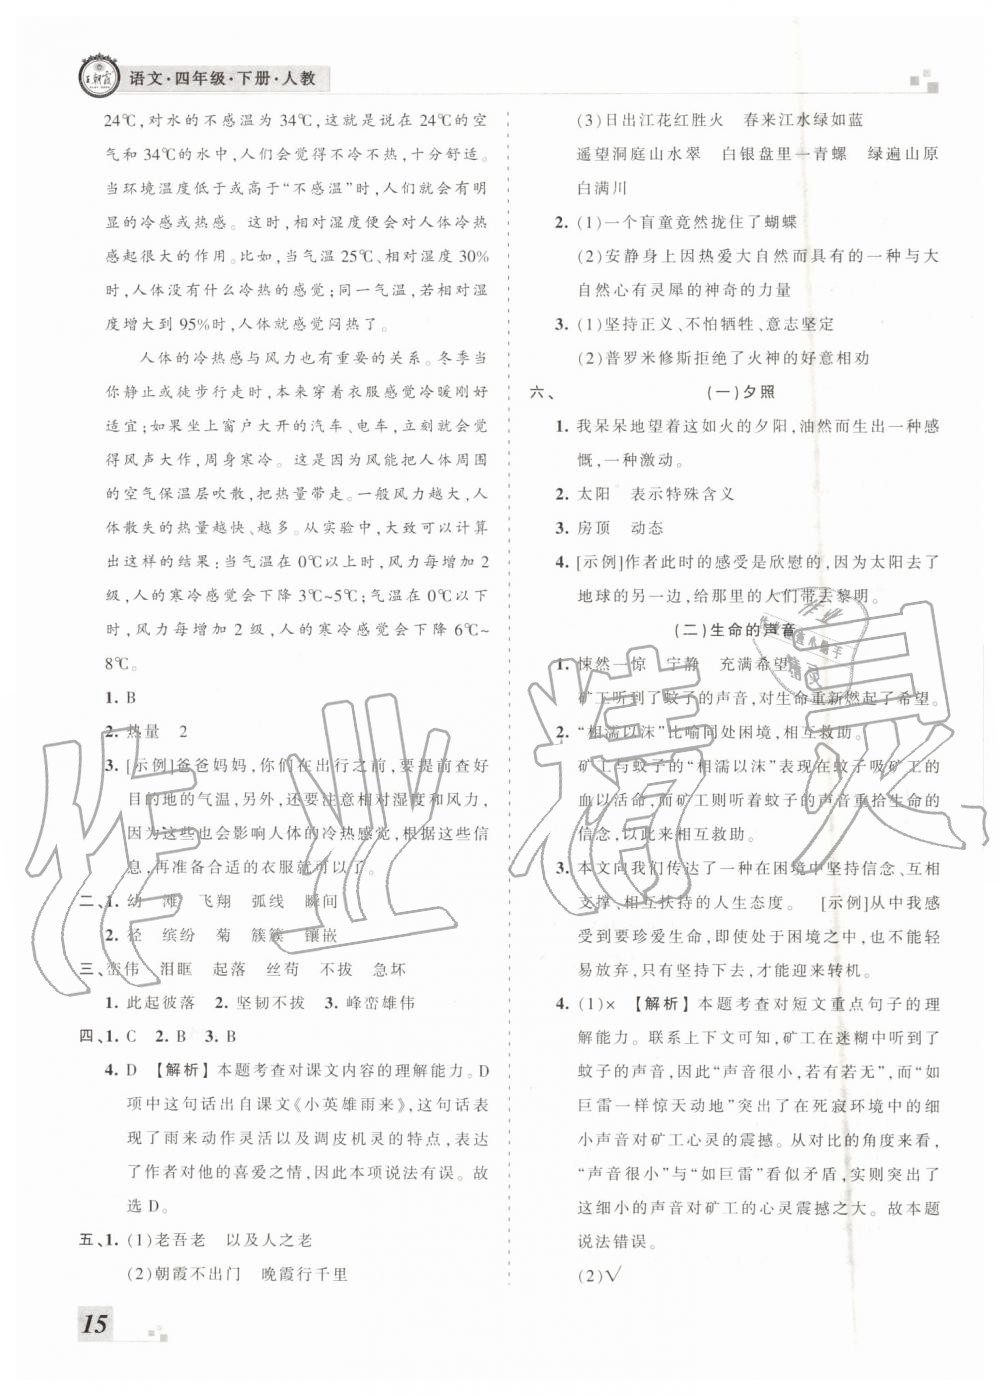 王朝霞
语文·四年级·下册·人教
24℃,对水的不感温为34℃,这就是说在24℃的空
气和34℃的水中,人们会觉得不冷不热,十分舒适。
当环境温度低于或高于“不感温”时,人们就会有明
显的冷感或热感。这时,相对湿度便会对人体冷热
感起很大的作用。比如,当气温25℃、相对湿度30%
时,人体没有什么冷热的感觉;同一气温,若相对湿
度增大到95%时,人体就感觉闷热了。
人体的冷热感与风力也有重要的关系。冬季当
你静止或徒步行走时,本来穿着衣服感觉冷暖刚好
适宜;如果坐上窗户大开的汽车、电车,立刻就会觉
得风声大作,周身寒冷。这是因为风能把人体周围
的空气保温层吹散,把热量带走。一般风力越大,人
体散失的热量越快、越多。从实验中,大致可以计算
出这样的结果:当气温在0℃以上时,风力每增加2
级,人的寒冷感觉会下降3℃~5℃;气温在0℃以下
时,风力每增加2级,人的寒冷感觉会下降6℃~
8℃。
1. B
2. 热量 2
3. [示例]爸爸妈妈,你们在出行之前,要提前查好
目的地的气温,另外,还要注意相对湿度和风力,
因为这些也会影响人体的冷热感觉,根据这些信
息,再准备合适的衣服就可以了。
二、1. 幼 滩 飞翔 弧线 瞬间
2. 径 缤纷 菊 簇簇 镶嵌
三、峦伟 泪眶 起落 丝苟 不拔 急坏
1. 此起彼落 2. 坚韧不拔 3. 峰峦雄伟
四、1. C 2. B 3. B
4. D 【解析】本题考查对课文内容的理解能力。D
项中这句话出自课文《小英雄雨来》,这句话表
现了雨来动作灵活以及调皮机灵的特点,表达
了作者对他的喜爱之情,因此本项说法有误。故
选D。
五、1. (1)老吾老 以及人之老
(2)朝霞不出门 晚霞行千里
(3)日出江花红胜火 春来江水绿如蓝
遥望洞庭山水翠 白银盘里一青螺 绿遍山原
白满川
2. (1)一个盲童竟然拢住了蝴蝶
(2)安静身上因热爱大自然而具有的一种与大
自然心有灵犀的神奇的力量
3. (1)坚持正义、不怕牺牲、意志坚定
(2)普罗米修斯拒绝了火神的好意相劝
六、 (一)夕照
1. 我呆呆地望着这如火的夕阳,油然而生出一种感
慨,一种激动。
2. 太阳 表示特殊含义
3. 房顶 动态
4. [示例]作者此时的感受是欣慰的,因为太阳去了
地球的另一边,给那里的人们带去黎明。
(二)生命的声音
1. 悚然一惊 宁静 充满希望
矿工听到了蚊子的声音,对生命重新燃起了希望。
2. “相濡以沫”比喻同处困境,相互救助。
矿工与蚊子的“相濡以沫”表现在蚊子吸矿工的
血以活命,而矿工则听着蚊子的声音重拾生命的
信念,以此来相互救助。
3. 本文向我们传达了一种在困境中坚持信念、相互
支撑、相互扶持的人生态度。 [示例]从中我感
受到要珍爱生命,即使处于困境之中,也不能轻
易放弃,只有坚持下去,才能迎来转机。
4. (1)× 【解析】本题考查对短文重点句子的理
解能力。联系上下文可知,矿工在迷糊中听到了
蚊子的声音,因此“声音很小,若有若无”,而“如
巨雷一样惊天动地”突出了在死寂环境中的细
小声音对矿工心灵的震撼。从对比的角度来看,
“声音很小”与“如巨雷”看似矛盾,实则突出了
这细小的声音对矿工的心灵震撼之大。故本题
说法错误。
(2)√
15
作业精灵